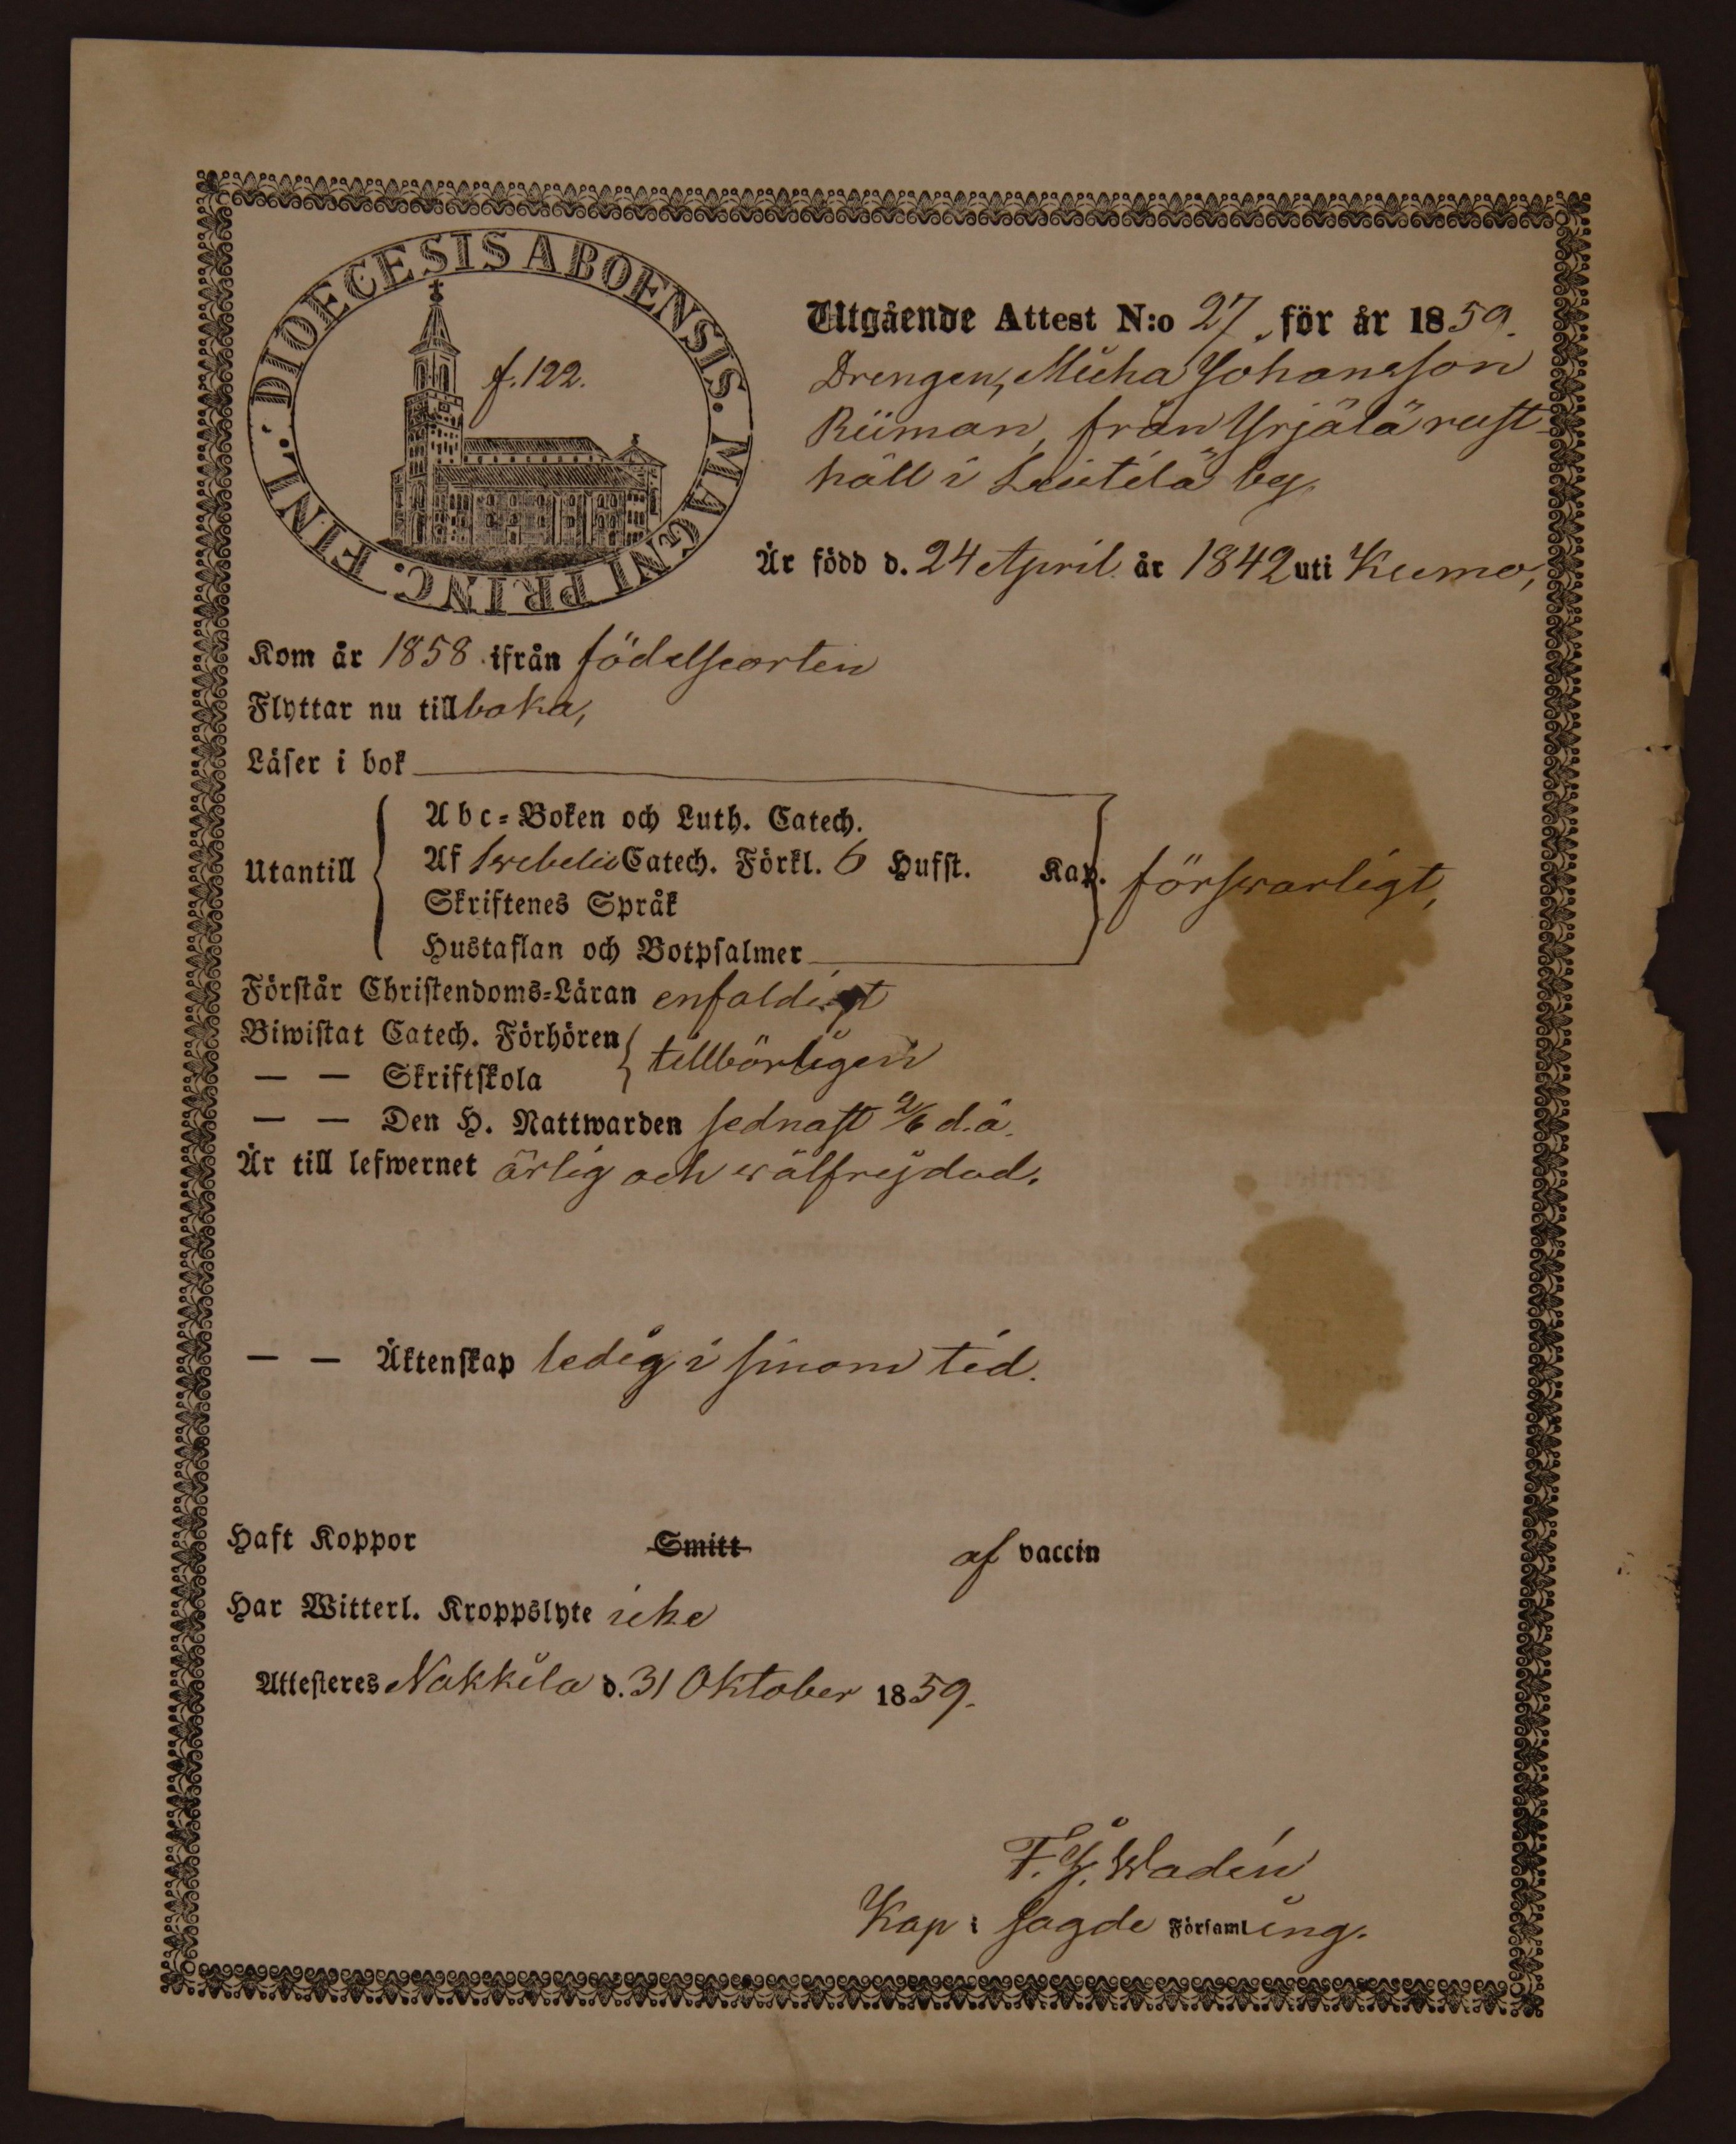 DIOECESIS ABOENSIS. MAGNI PRINC. FINL.
f. 122.
Utgående Attest N:o 27, för år 1859.
Drengen, Micha Johansson
Riiman, från Yrjälä rust-
håll i Leistilä by,
Är född d. 24 April år 1842 uti Kumo,
Kom år 1858 ifrån födelseorten
Flyttar nu tillbaka,
Läser i bok
Utantill
Abc-Boken och Luth. Catech.
Af Swebelii Catech. Förkl. 6 Hufst. Kap. försvarligt,
Skriftenes Språk
Hustaflan och Botpsalmer
Förstår Christendoms-Läran enfaldigt
Biwistat Catech. Förhören tillbörligen
— — Skriftskola
— — Den H. Nattwarden sednast 2/6 d.å.
Är till lefwernet ärlig och wälfrejdad.
— — Äktenskap ledig i sinom tid.
Haft Koppor Smitt af vaccin
Har Witterl. Kroppslyte icke
Attesteres Nakkila d. 31 Oktober 1859.
F. J. Wadén
Kap i sagde Församling.